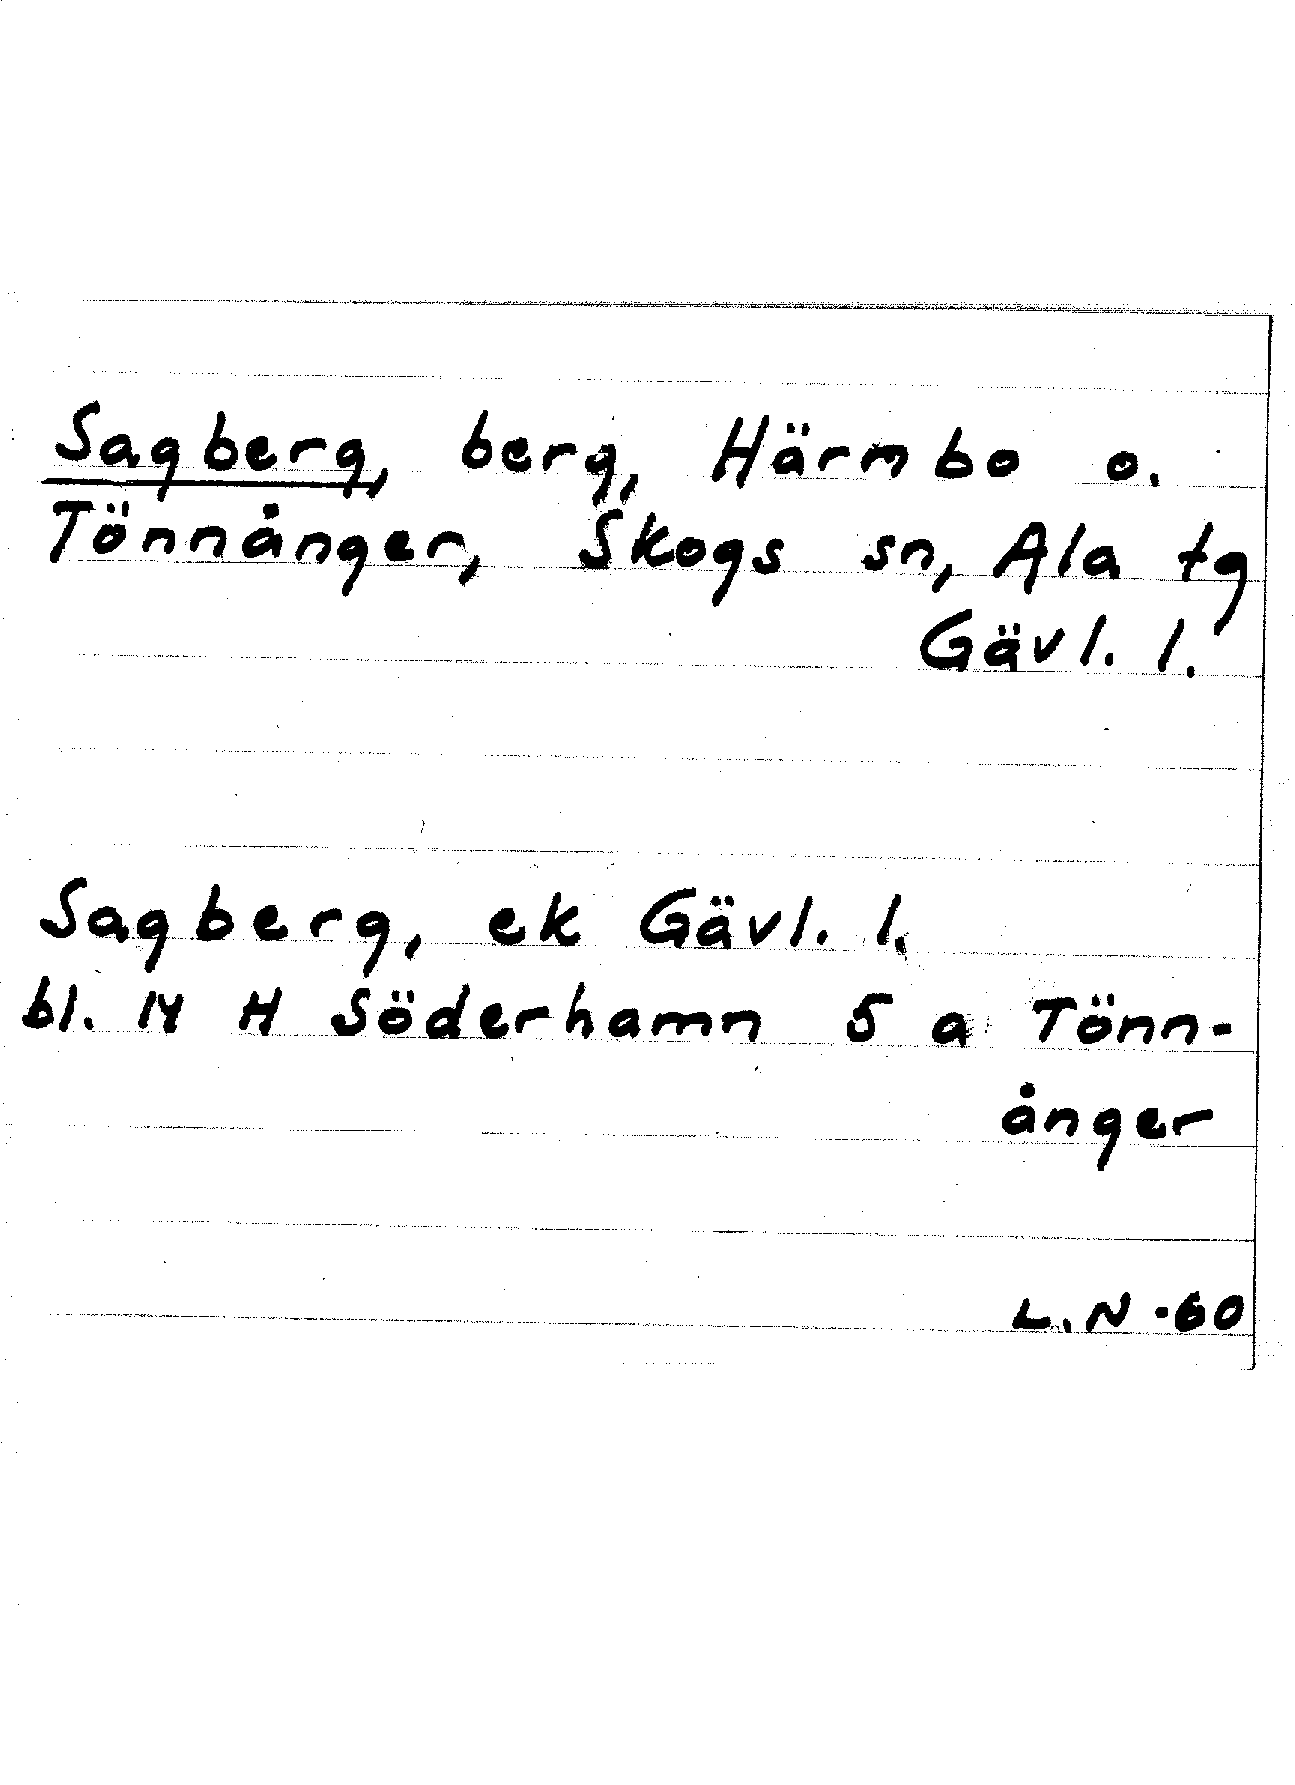 Sagberg, berg, Härmbo o.
Tönnånger, Skogs sn, Ala tg
Gävl. l.
Sagberg, ek Gävl. l.
bl. 14 H Söderhamn 5 a Tönn-
ånger
L.N -60